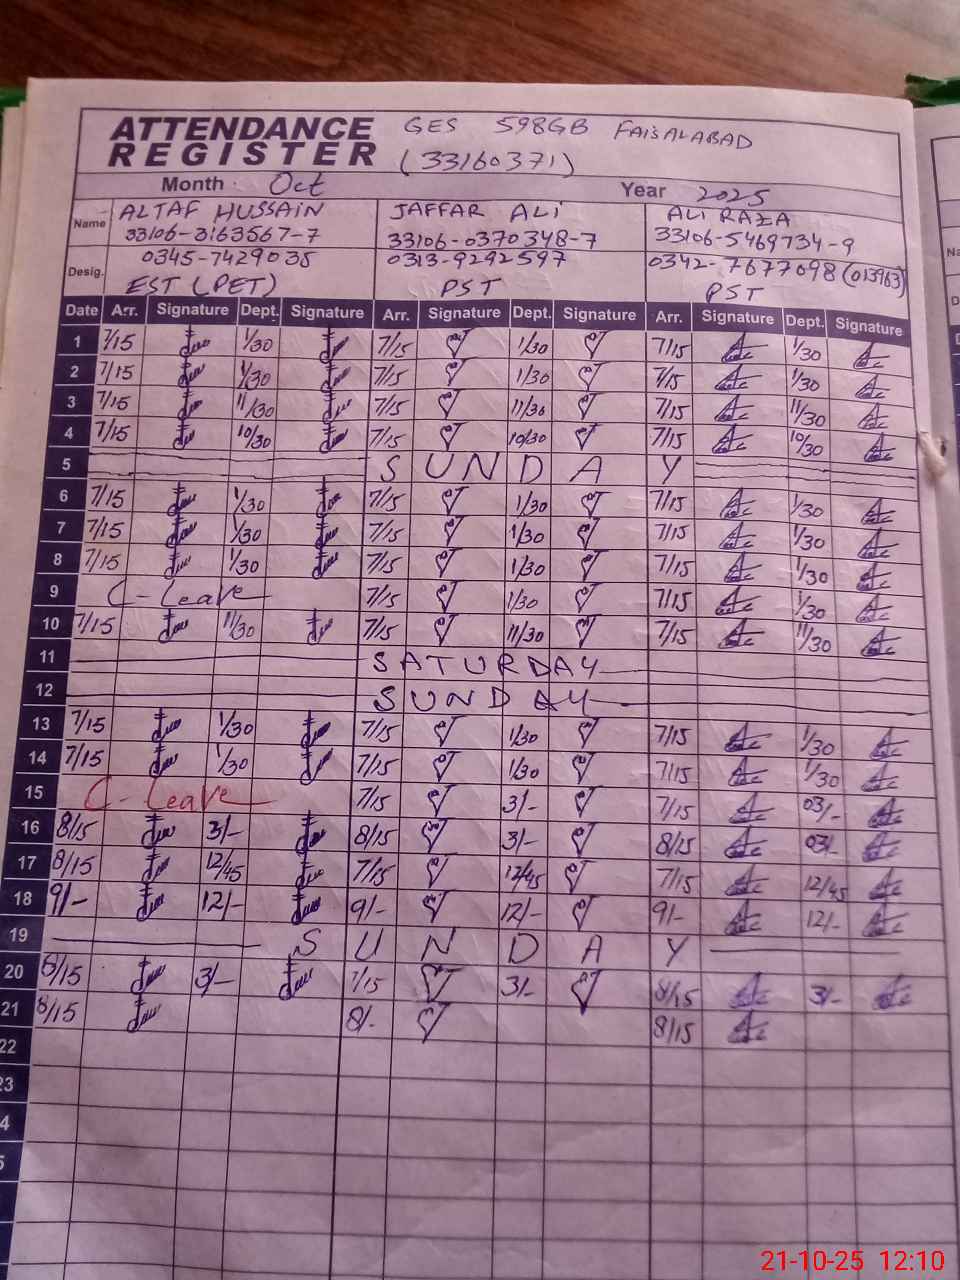 ATTENDANCE REGISTER GES 598GB FAISALABAD
(33160371)
Month Oct Year 2025
Name ALTAF HUSSAIN JAFFAR ALI ALI RAZA
33106-3163567-7 33106-0370348-7 33106-5469734-9
Desig. 0345-7429035 0313-9292597 0342-7677098 (013963)
EST (PET) PST PST
Date Arr. Signature Dept. Signature Arr. Signature Dept. Signature Arr. Signature Dept. Signature
1 7/15 1/30 7/15 1/30 7/15 1/30
2 7/15 1/30 7/15 1/30 7/15 1/30
3 7/15 11/30 7/15 11/30 7/15 11/30
4 7/15 10/30 7/15 10/30 7/15 10/30
5 SUNDAY
6 7/15 1/30 7/15 1/30 7/15 1/30
7 7/15 1/30 7/15 1/30 7/15 1/30
8 7/15 1/30 7/15 1/30 7/15 1/30
9 C-Leave 7/15 1/30 7/15 1/30
10 7/15 11/30 7/15 11/30 7/15 11/30
11 SATURDAY
12 SUNDAY
13 7/15 1/30 7/15 1/30 7/15 1/30
14 7/15 1/30 7/15 1/30 7/15 1/30
15 C-Leave 7/15 3/- 7/15 03/-
16 8/15 3/- 8/15 3/- 8/15 03/-
17 8/15 12/45 7/15 12/45 7/15 12/45
18 9/- 12/- 9/- 12/- 9/- 12/-
19 SUNDAY
20 3/- 3/- 8/15 3/-
21 8/15 8/- 8/15
22
23
4
5
21-10-25 12:10